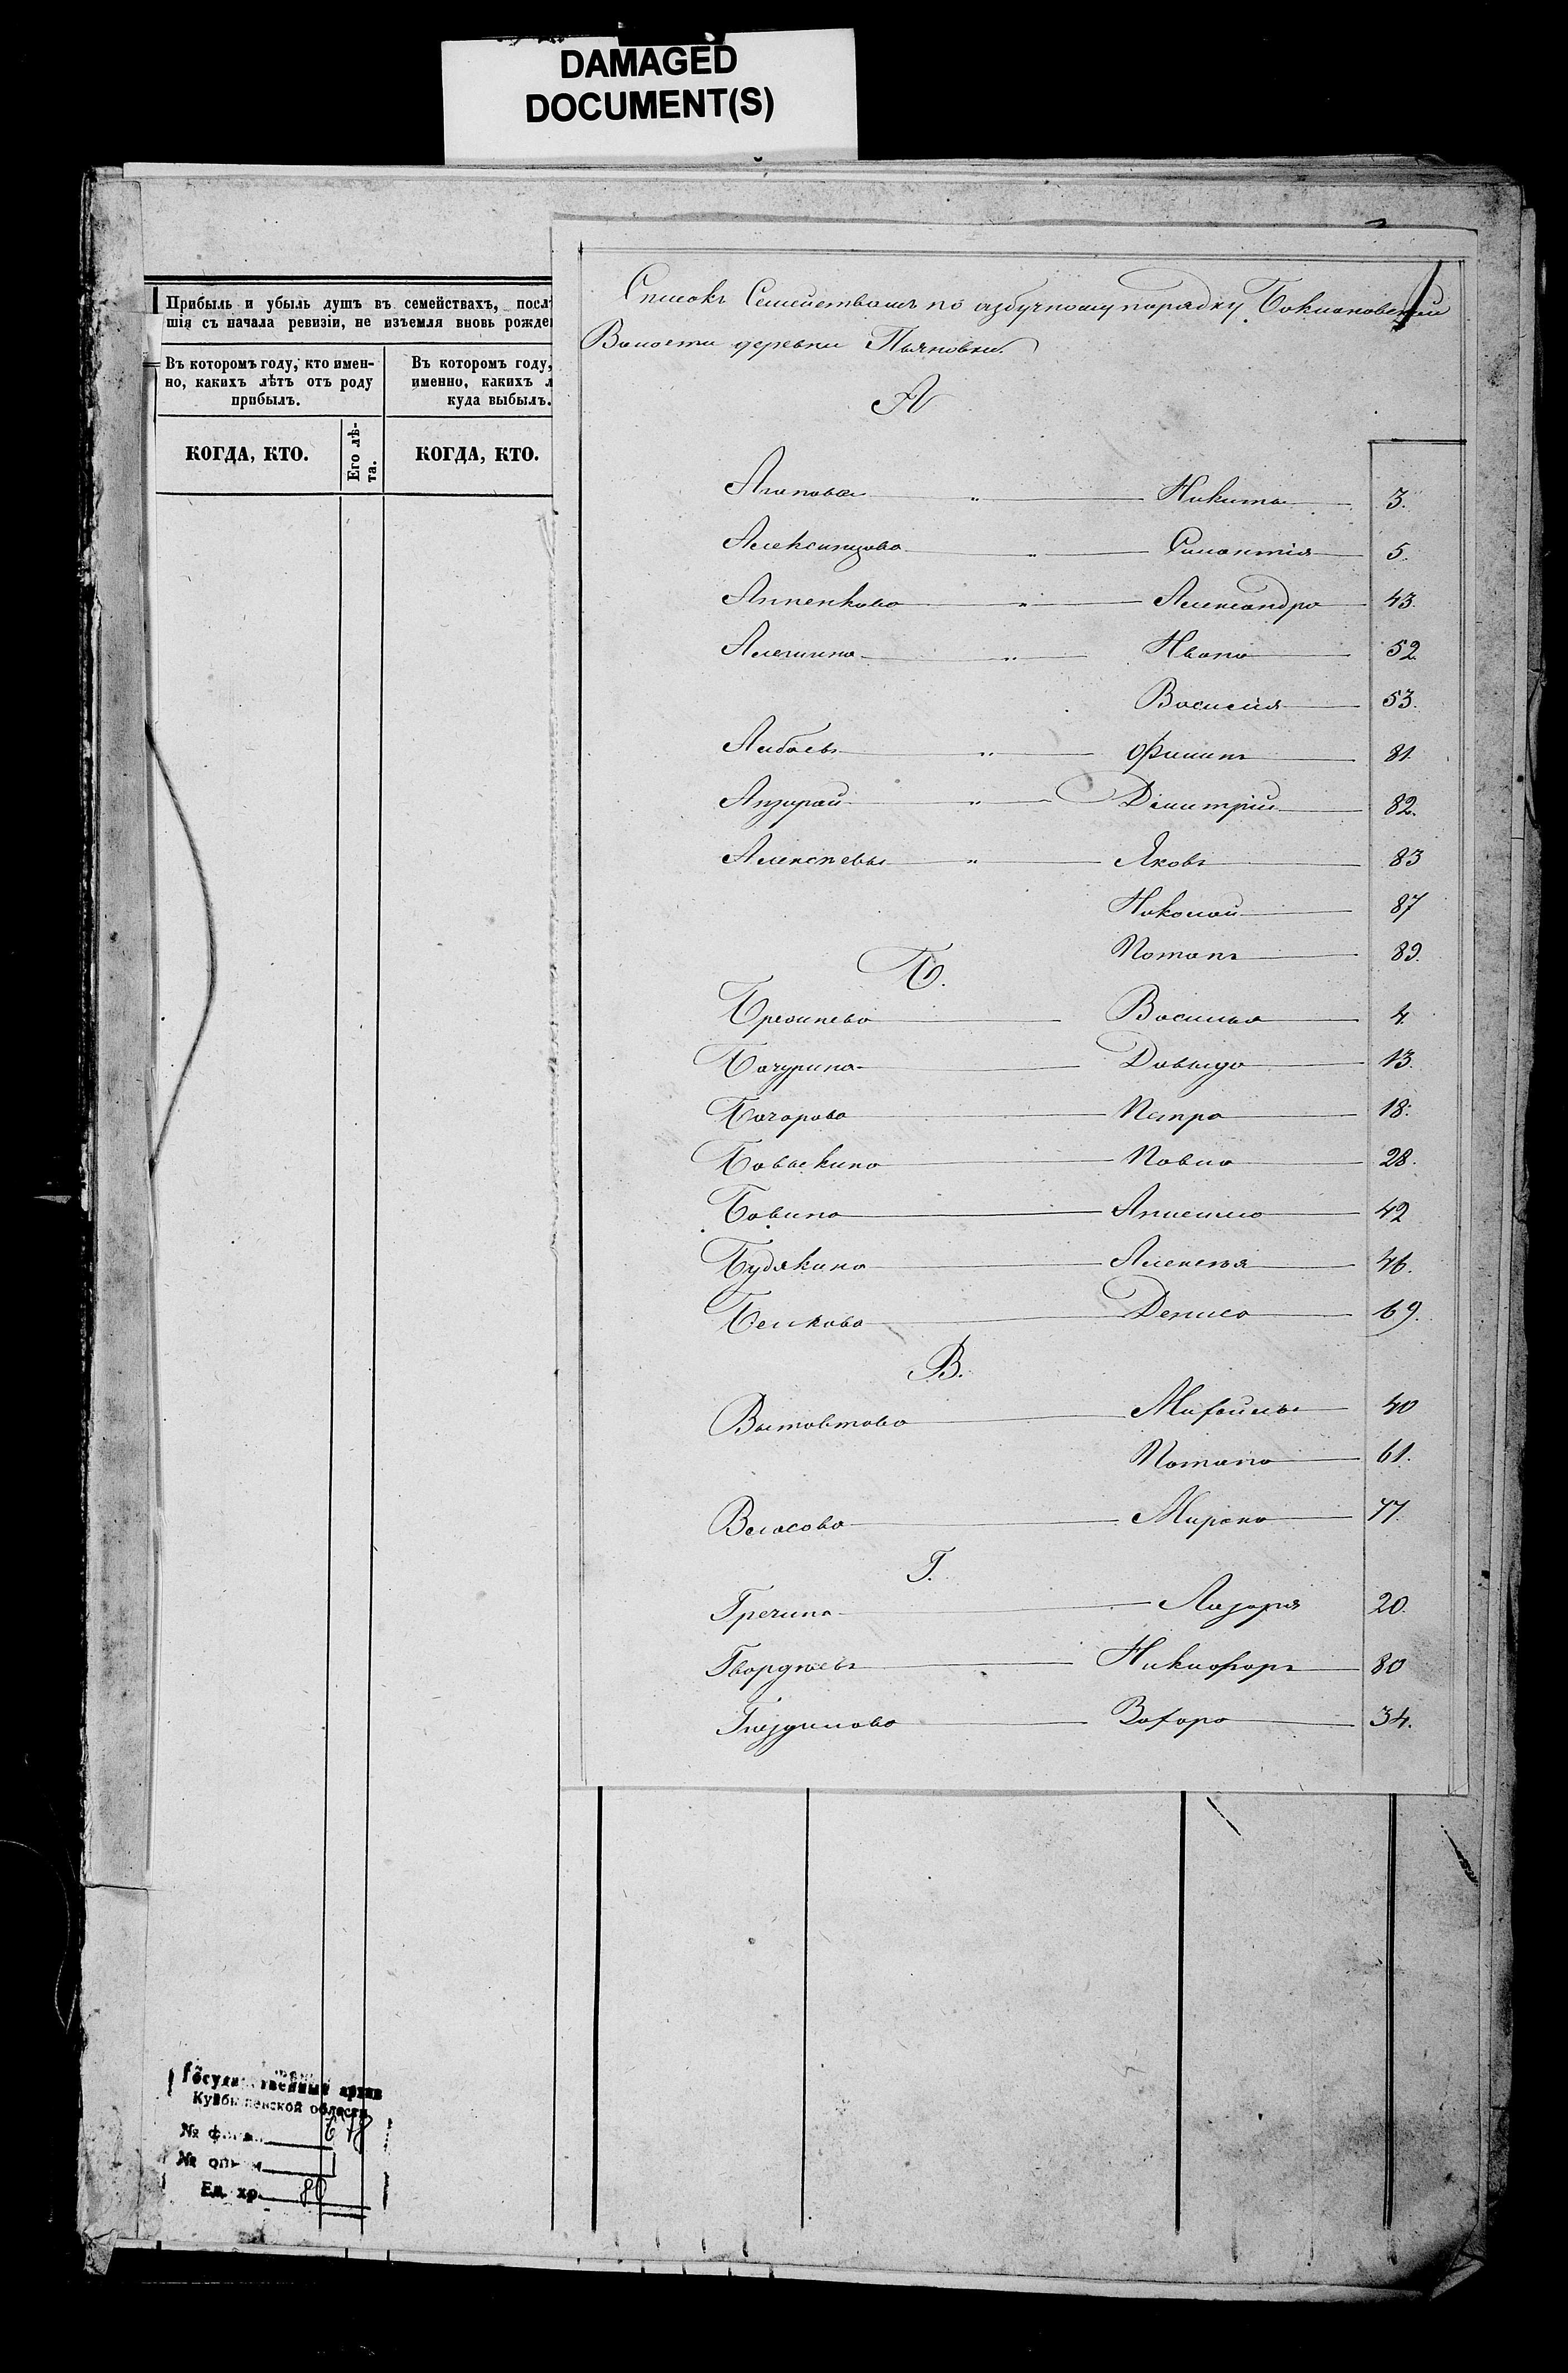 DAMAGED
DOCUMENT(S)
Прибыль и убыль душъ въ семействахъ, посл
шія съ начала ревизіи, не изъемля вновь рожде
Въ которомъ году, кто имен-
но, какихъ лѣтъ отъ роду
прибылъ.
Въ которомъ году,
именно, какихъ л
куда выбылъ.
КОГДА, КТО.
Его лѣ-
та.
КОГДА, КТО.
Списокъ Семействамъ по азбучному порядку
Волости деревни Пьяновки.
А
Агапова " Никиты 3.
" 5.
Анненкова " Александра 43.
Алешина " Ивана 52.
Василія 53.
" Филипъ 81.
" Димитрій 82.
Алексѣевы " Яковъ 83
Николай 87
Потапъ 89.
Б.
Василья 4.
Бачурина Давыда 13.
Петра 18.
Павла 28.
Бабина 42
Будякина Алексѣя 46.
Белкова Дениса 69.
В.
Вытовтова Михайлы 40
Потапа 61.
Власова Мирона 77.
Г.
Гречина Лазаря 20.
Никифоръ 80
Захара 34.
Государственный архив
Куйбышевской области
№ фонда
№ описи 1
Ед. хр.